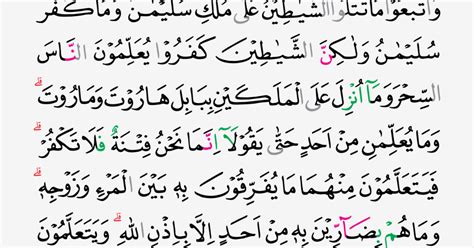 وَاتَّبَعُوْا مَا تَتْلُوا الشَّيٰطِيْنُ عَلٰى مُلْكِ سُلَيْمٰنَ وَمَا كَفَرَ
سُلَيْمٰنُ وَلٰكِنَّ الشَّيٰطِيْنَ كَفَرُوْا يُعَلِّمُوْنَ النَّاسَ
السِّحْرَ وَمَآ اُنْزِلَ عَلَى الْمَلَكَيْنِ بِبَابِلَ هَارُوْتَ وَمَارُوْتَ ۗ
وَمَا يُعَلِّمٰنِ مِنْ اَحَدٍ حَتّٰى يَقُوْلَآ اِنَّمَا نَحْنُ فِتْنَةٌ فَلَا تَكْفُرْ ۗ
فَيَتَعَلَّمُوْنَ مِنْهُمَا مَا يُفَرِّقُوْنَ بِهٖ بَيْنَ الْمَرْءِ وَزَوْجِهٖ ۗ
وَمَا هُمْ بِضَاۤرِّيْنَ بِهٖ مِنْ اَحَدٍ اِلَّا بِاِذْنِ اللّٰهِ ۗ وَيَتَعَلَّمُوْنَ